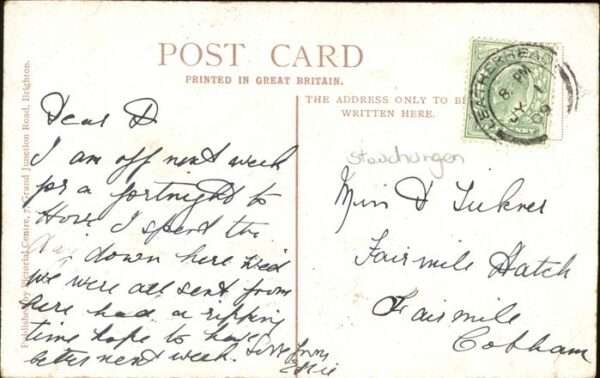 POST CARD
PRINTED IN GREAT BRITAIN.
THE ADDRESS ONLY TO BE
WRITTEN HERE.
Published by Pictorial Centre, 7, Grand Junction Road, Brighton.
LEATHERHEAD
8 PM
JY 1
09
Dear D
I am off next week
for a fortnight to
Hove I spent the
day down here Wed
we were all sent from
here had a ripping
time hope to have
better next week. Love from
Miss D
Fairmile Hatch
Fairmile
Cobham